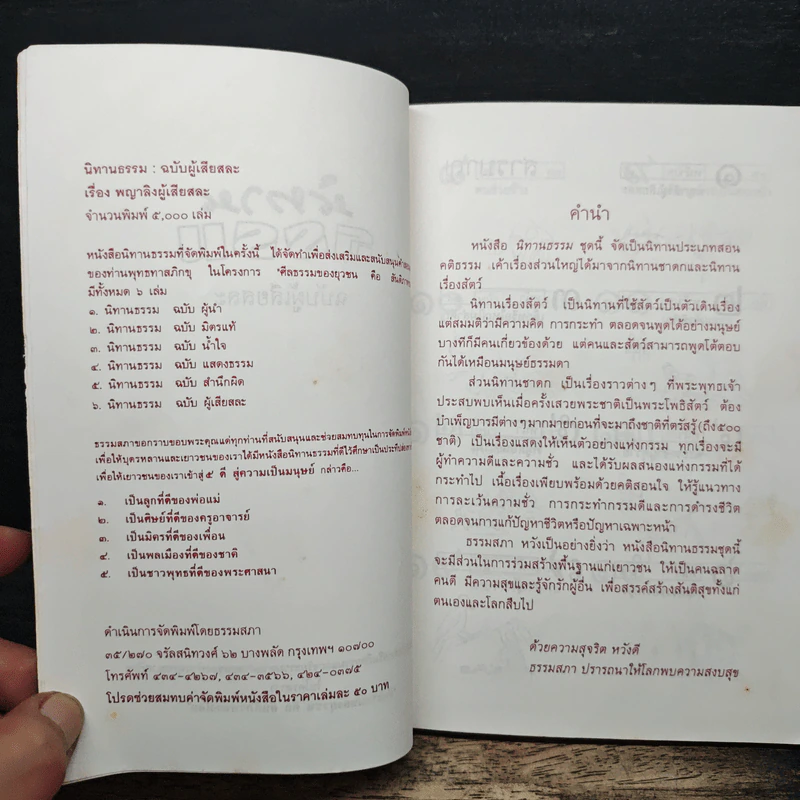 นิทานธรรม : ฉบับผู้เสียสละ
เรื่อง พญาลิงผู้เสียสละ
จำนวนพิมพ์ ๕,๐๐๐ เล่ม
หนังสือนิทานธรรมที่จัดพิมพ์ในครั้งนี้ ได้จัดทำเพื่อส่งเสริมและสนับสนุน
ของท่านพุทธทาสภิกขุ ในโครงการ "ศีลธรรมของยุวชน คือ
มีทั้งหมด ๖ เล่ม
๑. นิทานธรรม ฉบับ ผู้นำ
๒. นิทานธรรม ฉบับ มิตรแท้
๓. นิทานธรรม ฉบับ น้ำใจ
๔. นิทานธรรม ฉบับ แสดงธรรม
๕. นิทานธรรม ฉบับ สำนึกผิด
๖. นิทานธรรม ฉบับ ผู้เสียสละ
ธรรมสภาขอกราบขอบพระคุณแด่ทุกท่านที่สนับสนุนและช่วยสมทบทุนในการจัดพิมพ์
เพื่อให้บุตรหลานและเยาวชนของเราได้มีหนังสือนิทานธรรมที่ดีไว้ศึกษาเป็น
เพื่อให้เยาวชนของเราเข้าสู่ ๕ ดี สู่ความเป็นมนุษย์ กล่าวคือ...
๑. เป็นลูกที่ดีของพ่อแม่
๒. เป็นศิษย์ที่ดีของครูอาจารย์
๓. เป็นมิตรที่ดีของเพื่อน
๔. เป็นพลเมืองที่ดีของชาติ
๕. เป็นชาวพุทธที่ดีของพระศาสนา
ดำเนินการจัดพิมพ์โดยธรรมสภา
๓๕/๒๗๐ จรัลสนิทวงศ์ ๖๒ บางพลัด กรุงเทพฯ ๑๐๗๐๐
โทรศัพท์ ๔๓๔-๔๒๖๗, ๔๓๔-๓๕๖๖, ๔๒๔-๐๓๗๕
โปรดช่วยสมทบค่าจัดพิมพ์หนังสือในราคาเล่มละ ๕๐ บาท
คำนำ
หนังสือ นิทานธรรม ชุดนี้ จัดเป็นนิทานประเภทสอน
คติธรรม เค้าเรื่องส่วนใหญ่ได้มาจากนิทานชาดกและนิทาน
เรื่องสัตว์
นิทานเรื่องสัตว์ เป็นนิทานที่ใช้สัตว์เป็นตัวเดินเรื่อง
แต่สมมติว่ามีความคิด การกระทำ ตลอดจนพูดได้อย่างมนุษย์
บางทีก็มีคนเกี่ยวข้องด้วย แต่คนและสัตว์สามารถพูดโต้ตอบ
กันได้เหมือนมนุษย์ธรรมดา
ส่วนนิทานชาดก เป็นเรื่องราวต่างๆ ที่พระพุทธเจ้า
ประสบพบเห็นเมื่อครั้งเสวยพระชาติเป็นพระโพธิสัตว์ ต้อง
บำเพ็ญบารมีต่างๆมากมายก่อนที่จะมาถึงชาติที่ตรัสรู้(ถึง๕๐๐
ชาติ) เป็นเรื่องแสดงให้เห็นตัวอย่างแห่งกรรม ทุกเรื่องจะมี
ผู้ทำความดีและความชั่ว และได้รับผลสนองแห่งกรรมที่ได้
กระทำไป เนื้อเรื่องเพียบพร้อมด้วยคติสอนใจ ให้รู้แนวทาง
การละเว้นความชั่ว การกระทำกรรมดีและการดำรงชีวิต
ตลอดจนการแก้ปัญหาชีวิตหรือปัญหาเฉพาะหน้า
ธรรมสภา หวังเป็นอย่างยิ่งว่า หนังสือนิทานธรรมชุดนี้
จะมีส่วนในการร่วมสร้างพื้นฐานแก่เยาวชน ให้เป็นคนฉลาด
คนดี มีความสุขและรู้จักรักผู้อื่น เพื่อสรรค์สร้างสันติสุขทั้งแก่
ตนเองและโลกสืบไป
ด้วยความสุจริต หวังดี
ธรรมสภา ปรารถนาให้โลกพบความสงบสุข